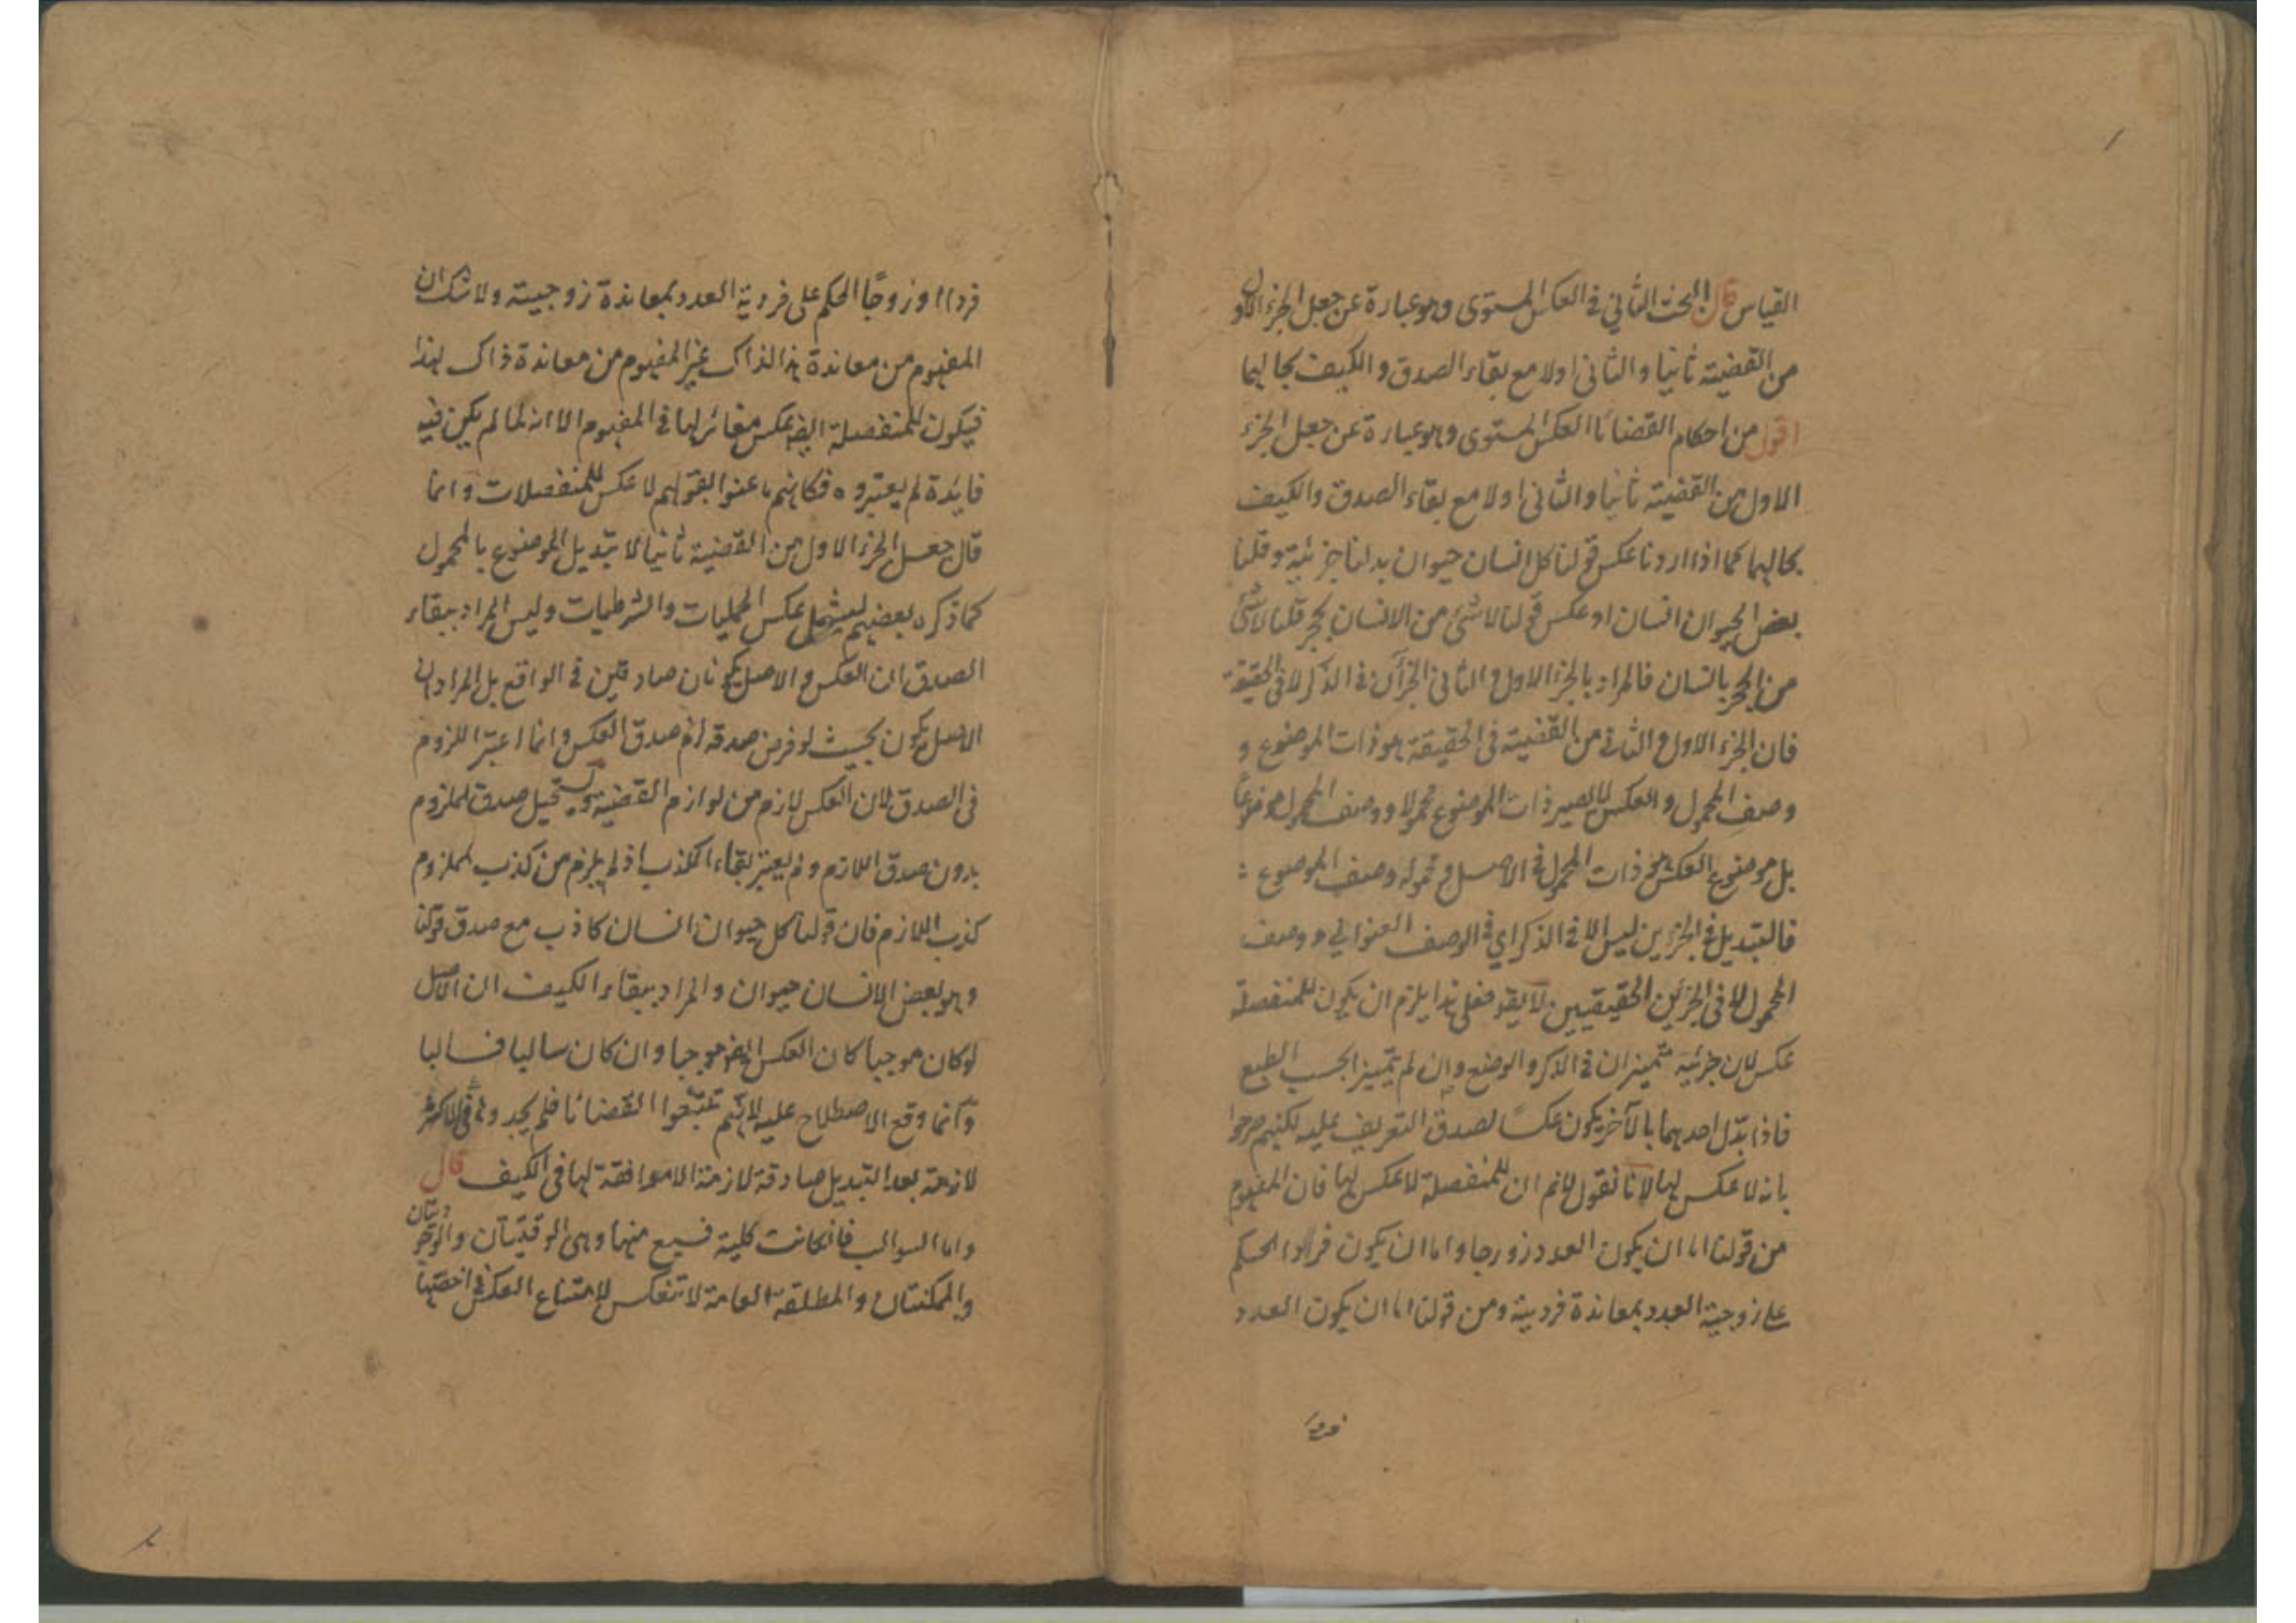 القياس قال البحث الثاني في العكس المستوى وهو عبارة عن جعل الجزء الاول
من القضية ثانيا والثاني اولا مع بقاء الصدق والكيف بحالهما
اقول من احكام القضايا العكس المستوى وهو عبارة عن جعل الجزء
الاول من القضية ثانيا والثاني اولا مع بقاء الصدق والكيف
بحالهما كما اذا اردنا عكس قولنا كل انسان حيوان بدلنا جزئيه وقلنا
بعض الحيوان انسان او عكس قولنا لا شئ من الانسان بحجر قلنا لا شئ
من الحجر بانسان فالمراد بالجزء الاول والثاني الجزآن في الذكر لا في الحقيقة
فان الجزء الاول والثاني من القضية في الحقيقة هو ذات الموضوع و
وصف المحمول والعكس لا يصير ذات الموضوع محمولا ووصف المحمول موضوعًا
بل موضوع العكس هو ذات المحمول في الاصل ومحموله وصف الموضوع
فالتبديل في الجزءين ليس الا في الذكر اي في الوصف العنواني ووصف
المحمول لا في الجزئين الحقيقيين لا يقو فعلى هذا يلزم ان يكون للمنفصلة
عكس لان جزئيه متميزان في الذكر والوضع وان لم يتميزا بحسب الطبع
فاذا بدّل احدهما بالآخر يكون عكسًا لصدق التعريف عليه لكنهم صرحوا
بانه لا عكس لها لانا نقول لانم ان المنفصلة لا عكس لها فان المفهوم
من قولنا اما ان يكون العدد زوجا واما ان يكون فردا الحكم
على زوجية العدد بمعاندة فردية ومن قولنا اما ان يكون العدد
فردا
فردا او زوجًا الحكم على فردية العدد بمعاندة زوجيته ولا شك ان
المفهوم من معاندة هذا لذاك غير المفهوم من معاندة ذاك لهذا
فيكون للمنفصلة ايضا عكس مغائر لها في المفهوم الا انه لما لم يكن فيه
فايدة لم يعتبروه فكانهم ما عنوا بقولهم لا عكس للمنفصلات وانما
قال جعل الجزء الاول من القضية ثانيا لا تبديل الموضوع بالمحمول
كما ذكره بعضهم ليشمل عكس الحمليات والشرطيات وليس المراد ببقاء
الصدق ان العكس والاصل يكونان صادقين في الواقع بل المراد ان
الاصل يكون بحيث لو فرض صدقه لزم صدق العكس وانما اعتبر اللزوم
في الصدق لان العكس لازم من لوازم القضية ويستحيل صدق الملزوم
بدون صدق اللازم ولم يعتبر بقاء الكذب اذ لم يلزم من كذب الملزوم
كذب اللازم فان قولنا كل حيوان انسان كاذب مع صدق قولنا
وهو بعض الانسان حيوان والمراد ببقاء الكيف ان الاصل
لو كان موجبا كان العكس ايضا موجبا وان كان سالبا فسالبا
وانما وقع الاصطلاح عليه لانهم تتبّعوا القضايا فلم يجدوها في الاكثر
لازمة بعد التبديل صادقة لازمة الا موافقة لها في الكيف قال
واما السوالب فان كانت كلية فسبع منها وهى الوقتيتان والوجوديتان
والممكنتان والمطلقة العامة لا تنعكس لامتناع العكس في اخصها